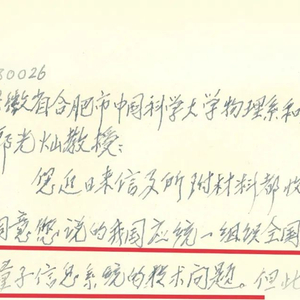 30026
徽省合肥市中国科学大学物理系和
郭光灿教授:
您近日来信及所附材料都收
同意您说的我国应统一组织全国
量子信息系统的技术问题。但此